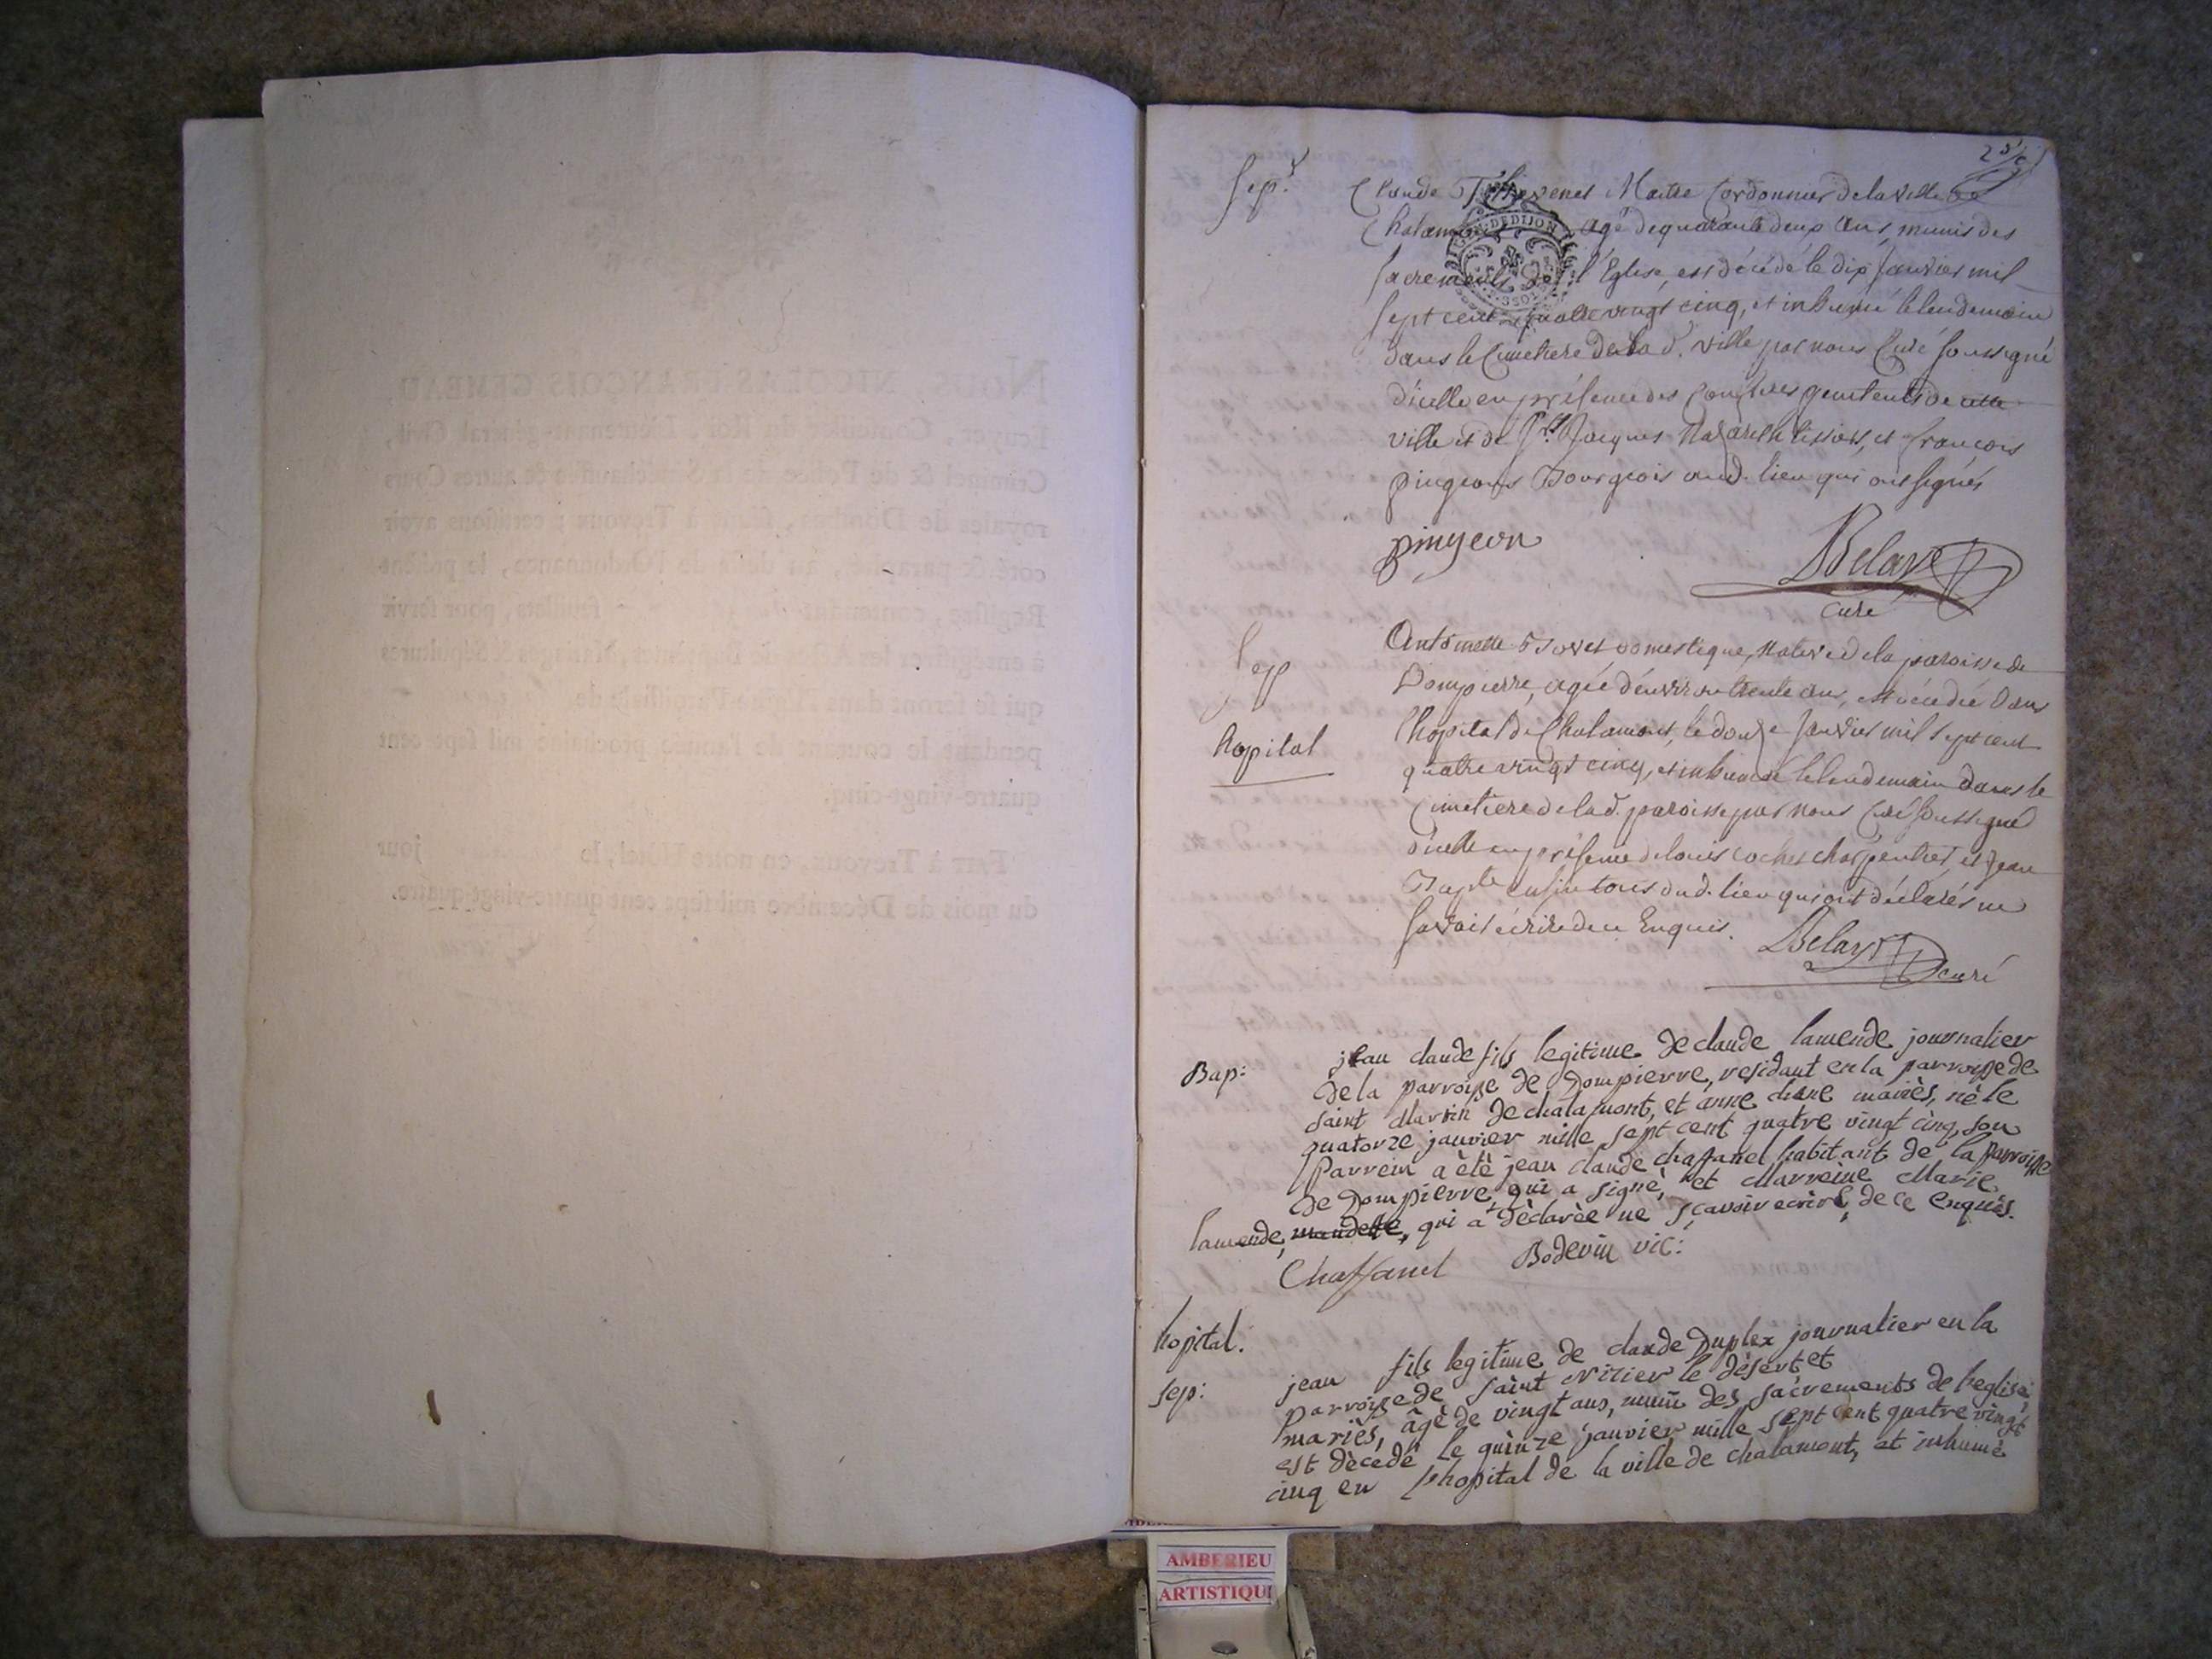 Sep.^r
Claude Thevenet Maitre Cordonnier de la ville de
Chalamont agé de quarante deux ans, munis des
sacrements de l'Eglise, est décédé le dix janvier mil
sept cent quatre vingt cinq, et inhumé le lendemain
dans le Cimetiere de lad. ville par nous Curé soussigné
d'icelle en présence des Confreres penitents de cette
ville et de Jacques Nazareth tissier, et francois
pingeons Bourgeois aud. lieu qui ont signés
pingeon
Belaye
curé
Sep
hopital
Antoinette domestique, native de la paroisse de
Dompierre, agée d'environ trente ans, est décédée dans
l'hopital de Chalamont, le douze janvier mil sept cent
quatre vingt cinq, et inhumée le lendemain dans le
Cimetiere de lad. paroisse par nous Curé soussigné
d'icelle en présence de louis cochet charpentier, et jean
tous dud. lieu qui ont déclarés ne
savoir écrire de ce Enquis.
Belaye curé
Bap:
jean claude fils legitime de claude lamende journalier
de la parroisse de Dompierre, residant en la parroisse de
saint Martin de chalamont, et anne mariès, nè le
quatorze janvier mille sept cent quatre vingt cinq, son
Parrein a ètè jean claude chaffanel habitant de la parroisse
de Dompierre qui a signè, et Marreine Marie
lamende, qui a dèclarèe ne sçavoir ecrire, de ce enquis.
Chaffanel Bodevin vic:
hopital.
sep:
jean fils legitime de claude Duplex journalier en la
parroisse de saint Nizier le dèsert et
mariès, âgè de vingt ans, muni des sacrements de l'eglise,
est dècedè le quinze janvier mille sept cent quatre vingt
cinq en l'hopital de la ville de chalamont, et inhumè
NOUS, NICOLAS-FRANÇOIS GEMEAU,
Ecuyer, Conseiller du Roi, Lieutenant-général Civil,
Criminel & de Police de la Sénéchaussée & autres Cours
royales de Dombes, séant à Trevoux ; certifions avoir
coté & paraphé, au desir de l'Ordonnance, le présent
Registre, contenant feuillets, pour servir
à enregistrer les Actes de Baptêmes, Mariages & Sépultures
qui se feront dans l'Eglise Paroissiale de
pendant le courant de l'année prochaine mil sept cent
quatre-vingt-cinq.
FAIT à Trevoux, en notre Hôtel, le jour
du mois de Décembre mil sept cent quatre-vingt-quatre.
AMBERIEU
ARTISTIQU